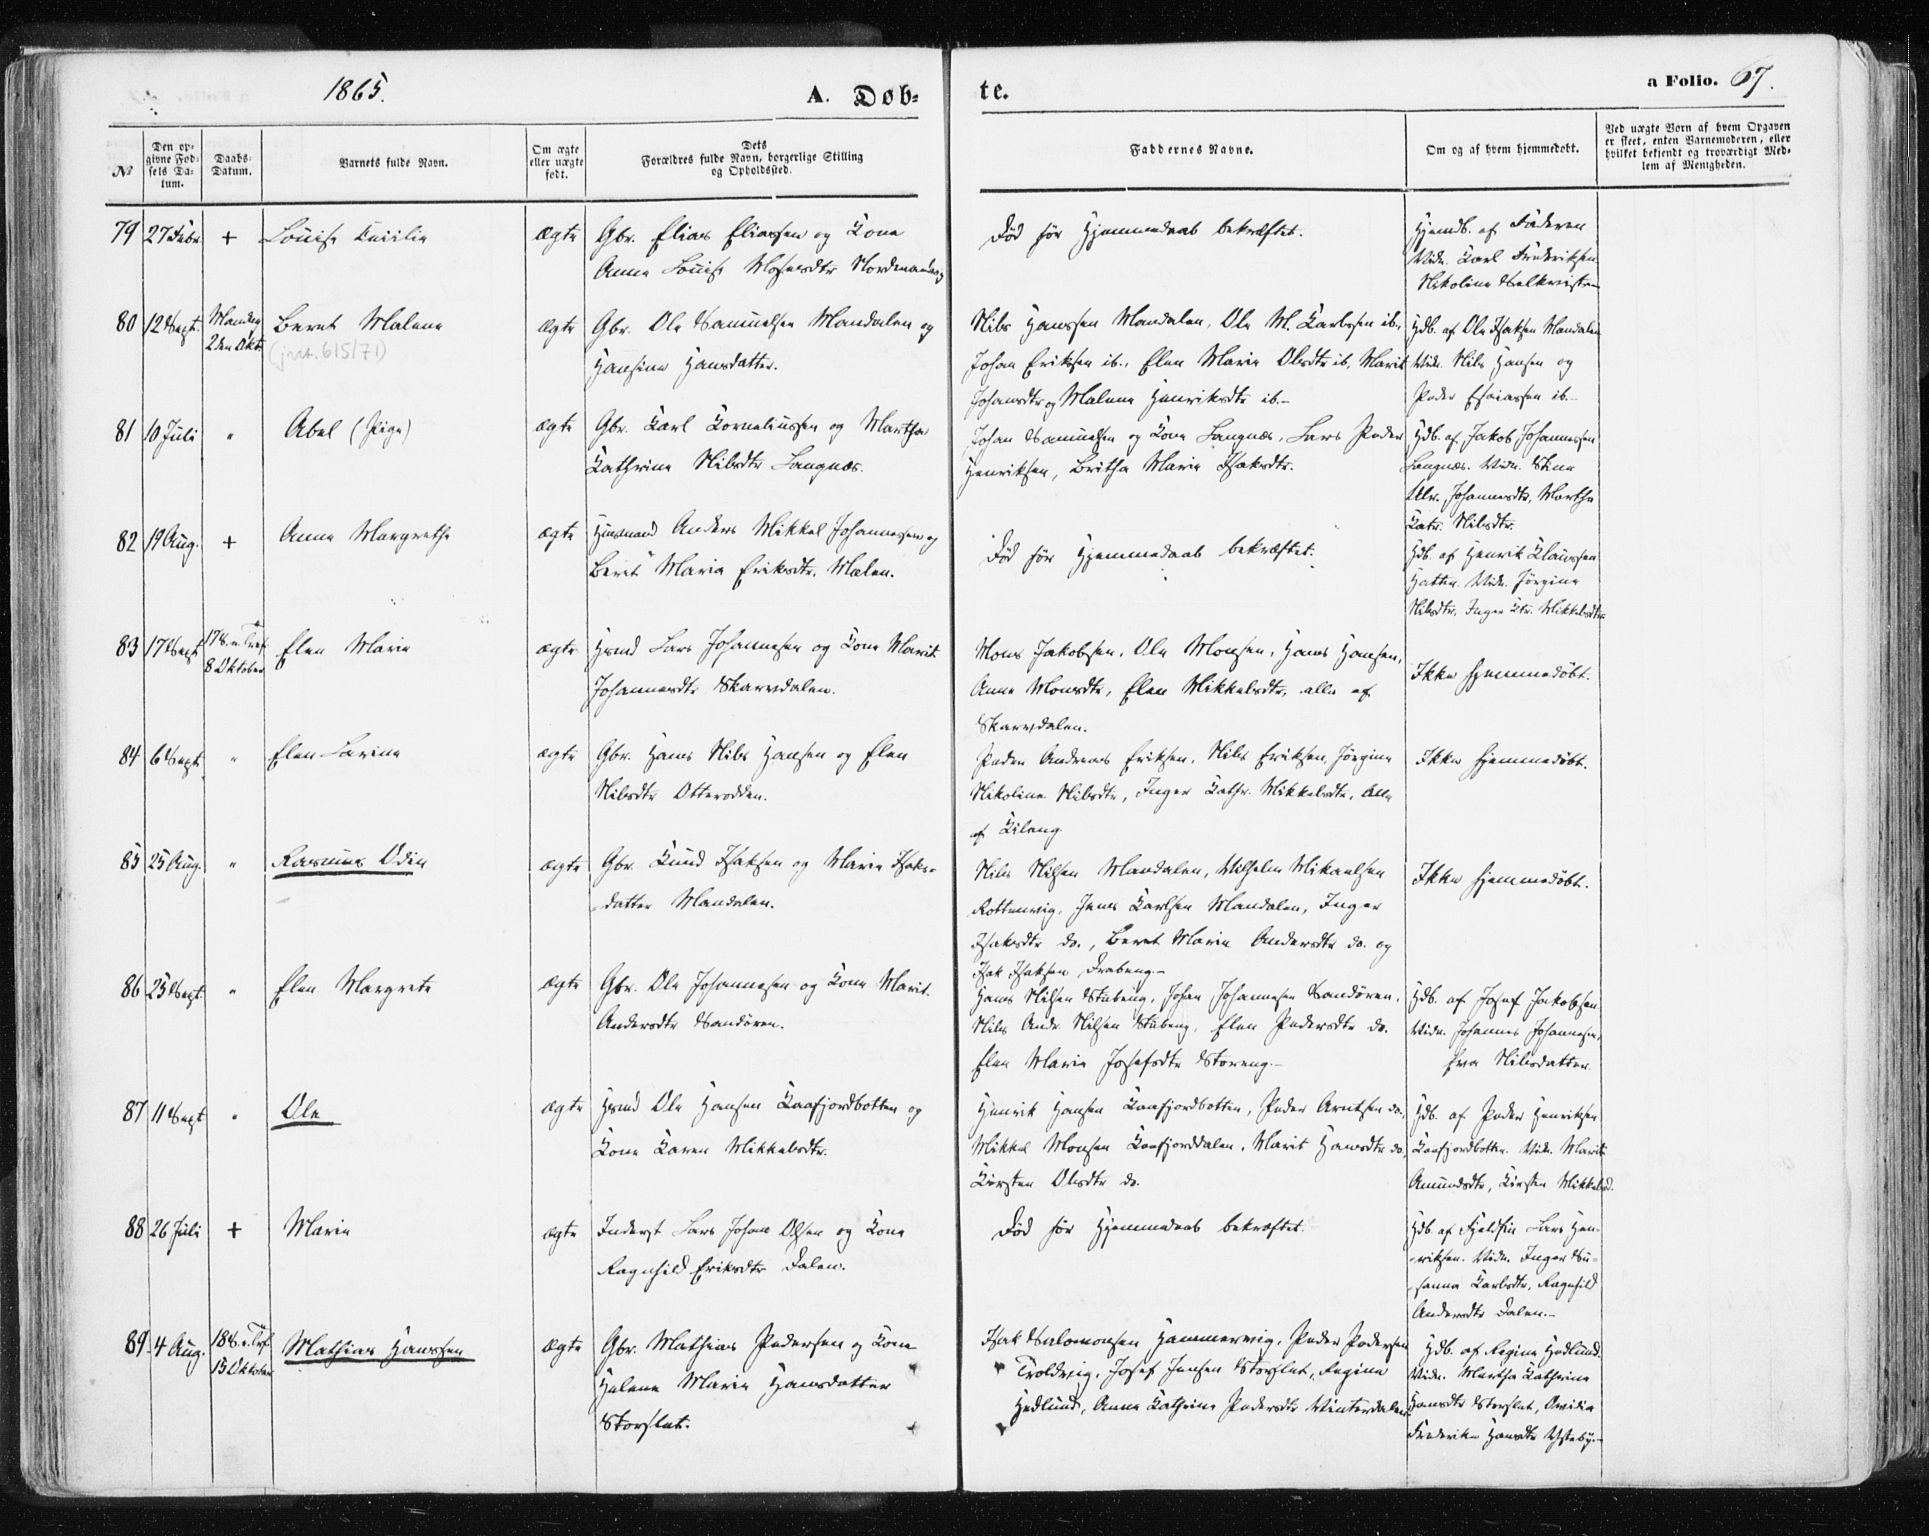 1865.
A. Døb-
te.
a Folio. 67.
№
Den op-
givne Fød-
sels Da-
tum.
Daabs-
Datum.
Barnets fulde Navn.
Om ægte
eller uægte
født.
Dets
Forældres fulde Navn, borgerlige Stilling
og Opholdssted.
Faddernes Navne.
Om og af hvem hjemmedøbt.
Ved uægte Børn af hvem Opgaven
er skeet, enten Barnemoderen, eller
hvilket bekjendt og troværdigt Med-
lem af Menigheden.
79 27 Febr. + Louise Cecilie ægte
Gbr. Elias Eliassen og Kone
Anne Louise
Død før Hjemmedaab bekræftet.
Hjemdb. af Faderen
Vidn. Carl Frederiksen
Nikoline
80 12 Sept. Mandag
2den Okt.
Beret Malene
(jvt. 615/71)
ægte
Gbr. Ole Samuelsen Mandalen og
Hansine Hansdatter.
Nils Hanssen Mandalen, Ole M. Karlssen ib.,
Johan Eriksen ib., Elen Marie Olsdtr ib, Marit
Johansdtr og Malene Henriksdtr ib.-
Hdb. af Ole Isaksen Mandalen
Vidn. Nils Hansen og
Peder Esaiassen ib.-
81 10 Juli " Abel (Pige) ægte
Gbr. Karl Korneliussen og Martha
Kathrine Nilsdtr Langnæs.
Johan Samuelsen og Kone Langnæs, Lars Peder
Henriksen, Britha Marie Isaksdtr.
Hdb. af Jakob Johannessen
Langnæs. Vidn. Stine
Johannesdtr, Martha
Katr. Nilsdtr.
82 19 Aug. + Anne Margrethe ægte
Husmand Anders Mikkel Johannessen og
Beret Maria Eriksdtr. Mælen.
Død før Hjemmedaab bekræftet.
Hdb. af Henrik Klaussen
Hatten. Vidn. Jørgine
Nilsdtr. Inger Ktr. Mikkelsdtr
83 17 Sept. 17 S. e. Tref.
8 Oktober
Elen Marie ægte
Hsmd Lars Johannesen og Kone Marit
Johannesdtr Skarvdalen.
Mons Jakobsen, Ole Monsen, Hans Hansen,
Anne Monsdtr, Elen Mikkelsdtr, alle af
Skarvdalen.
Ikke hjemmedøbt.
84 6 Sept. " Elen Lavine ægte
Gbr. Hans Nils Hansen og Elen
Nilsdtr Otterodden.
Peder Andreas Eriksen, Nils Eriksen, Jørgine
Nikoline Nilsdtr, Inger Kathr. Mikkelsdtr, Alle
af Kileng.
Ikke hjemmedøbt.
85 25 Aug. " Rasmus Odin ægte
Gbr. Knud Isaksen og Marie Isaks-
datter Mandalen.
Nils Nilsen Mandalen, Vilhelm Mikaelsen
Rottenvig, Jens Karlsen Mandalen, Inger
Isaksdtr do., Beret Marie Andersdtr do. og
Isak Isaksen Drabeng.-
Ikke hjemmedøbt.
86 25 Sept. " Elen Margrete ægte
Gbr. Ole Johannesen og Kone Marit
Andersdtr Sandøren.
Hans Nilsen Stubeng, Johan Johannesen Sandøren,
Nils Andr. Nilsen Stubeng, Elen Pedersdtr do.
Elen Marie Josefsdtr Storeng.-
Hdb. af Josef Jakobsen
Vidn. Johannes Johannesen,
Eva Nilsdatter.
87 11 Sept " Ole ægte
Hsmd Ole Hansen Kaafjordbotten og
Kone Karen Mikkelsdtr.
Henrik Hansen Kaafjordbotten, Peder Arntsen do.
Mikkel Monsen Kaafjorddalen, Marit Hansdtr do,
Kirsten Olsdtr do.
Hdb. af Peder Henriksen
Kaafjordbotten. Vidn. Marit
Amundsdtr, Kirsten Mikkelsd.
88 26 Juli + Marie ægte
Inderst Lars Johan Olsen og Kone
Ragnhild Eriksdtr Dalen.
Død før Hjemmedaab bekræftet.
Hdb. af Fjeldfin Lars Hen-
riksen. Vidn. Inger Su-
sanna Karlsdtr, Ragnhild
Andersdtr Dalen.-
89. 4 Aug. 18 S. e. Tref.
15 Oktober
Mathias Hanssen ægte
Gbr. Mathias Pedersen og Kone
Helene Marie Hansdatter
Storslet.
Isak Salomonsen Hammervig, Peder Pedersen
Troldvig, Josef Jensen Storslet, Regine
Hedlund, Anne Kathrine Pedersdtr Winterdalen
Hdb. af Regine Hedlund.
Vidn. Martha Kathrine
Hansdtr Storslet, Ovidia
Frederike Hansdtr